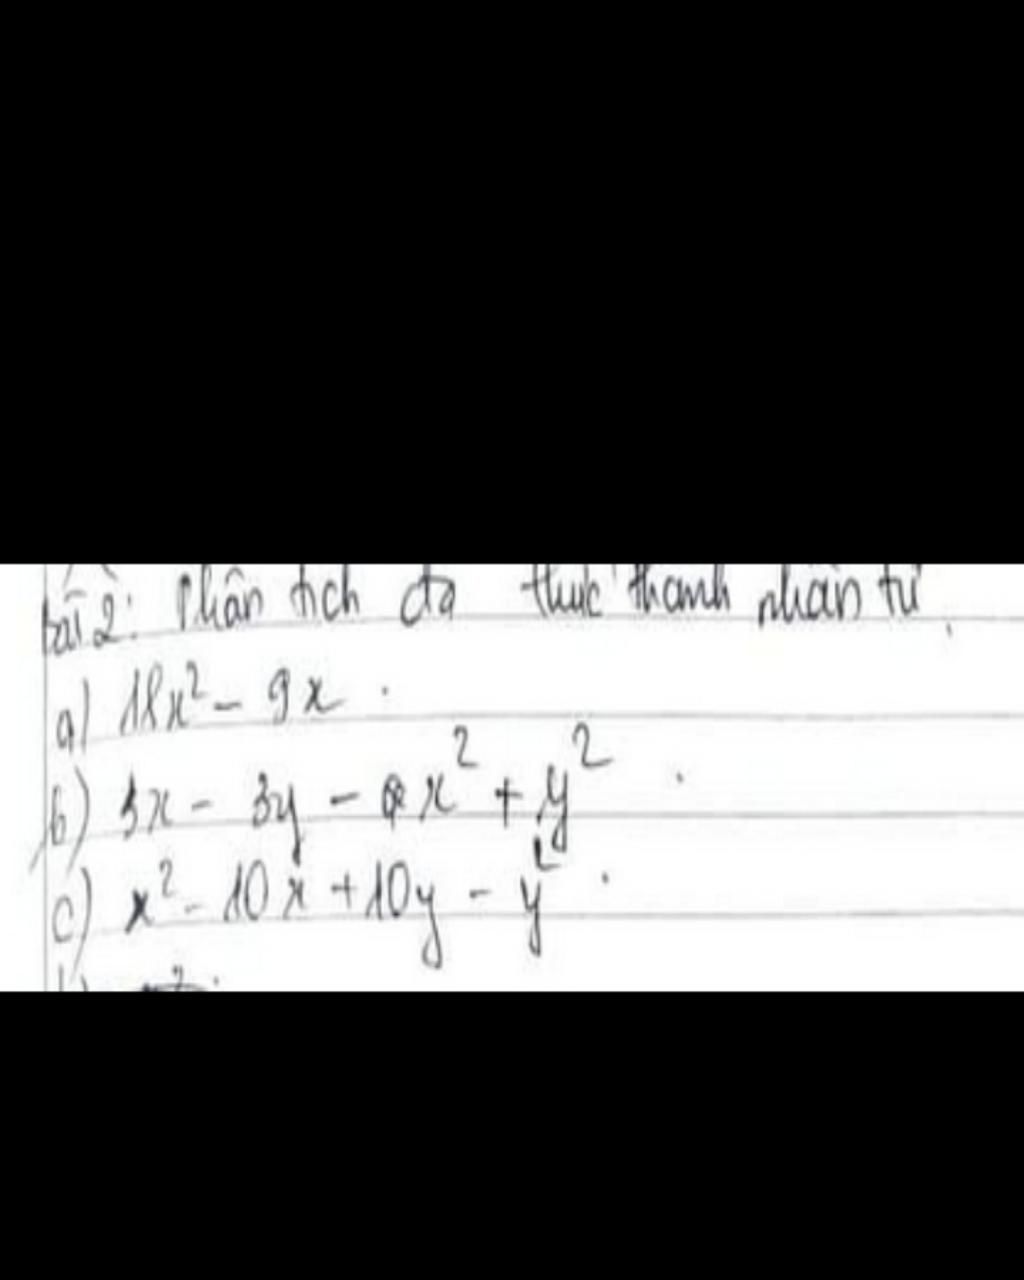 bài 2: Phân tích đa thức thành nhân tử.
a) 18x² - 9x.
b) 3x - 3y - x² + y².
c) x² - 10x + 10y - y².